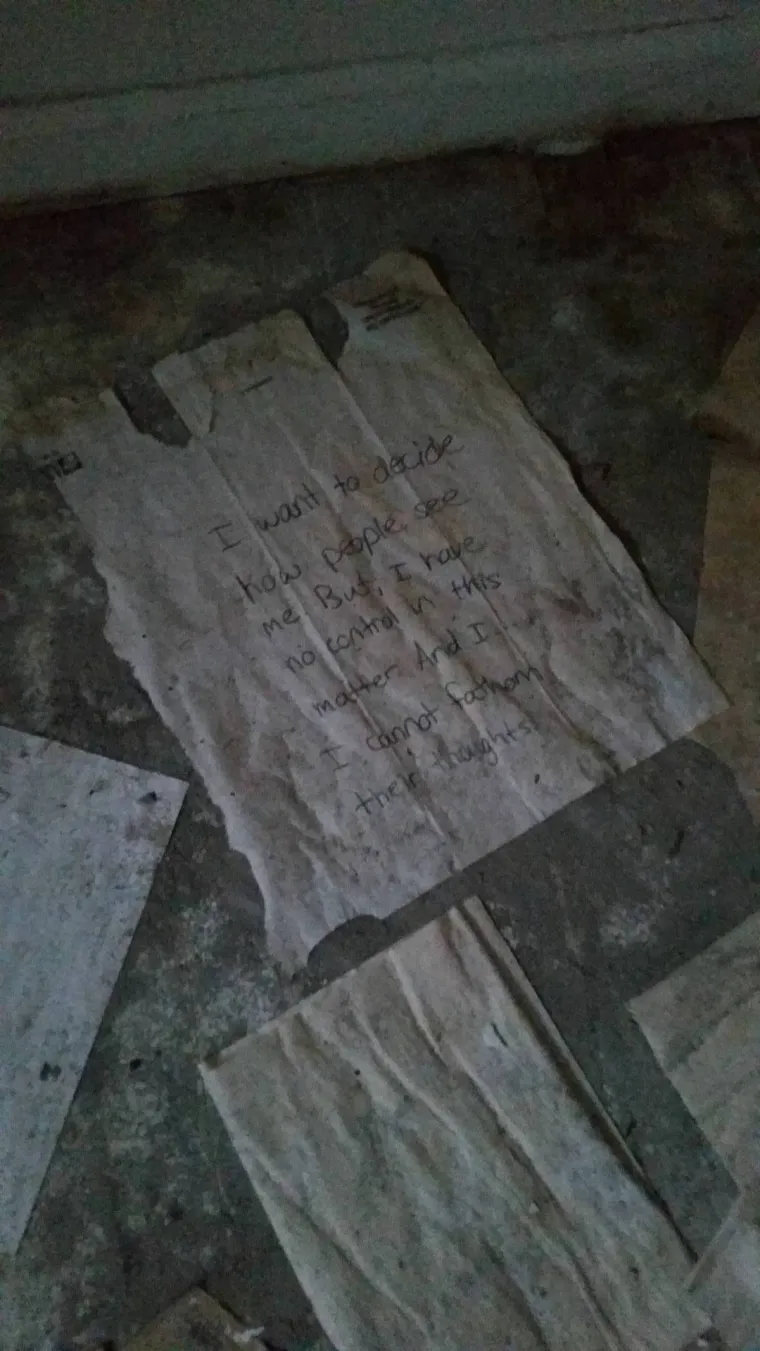 I want to decide
how people see
me. But, I have
no control in this
matter. And I...
I cannot fathom
their thoughts.